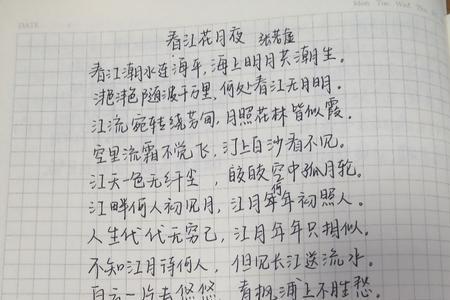 DATE
Mon Tue Wed Thu
春江花月夜 张若虚
春江潮水连海平,海上明月共潮生。
滟滟随波千万里,何处春江无月明。
江流宛转绕芳甸,月照花林皆似霞。
空里流霜不觉飞,汀上白沙看不见。
江天一色无纤尘,皎皎空中孤月轮。
江畔何人初见月,江月何年初照人。
人生代代无穷已,江月年年只相似。
不知江月待何人,但见长江送流水。
白云一片去悠悠,青枫浦上不胜愁。